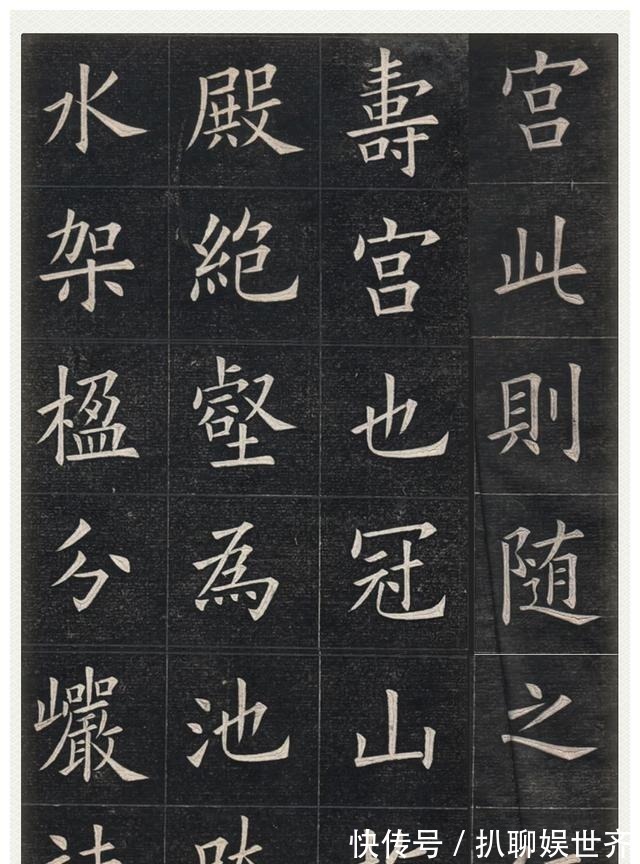 宫此則随之
壽宫也冠山
殿絶壑為池
水架楹分巖
快传号 / 扒聊娱世齐